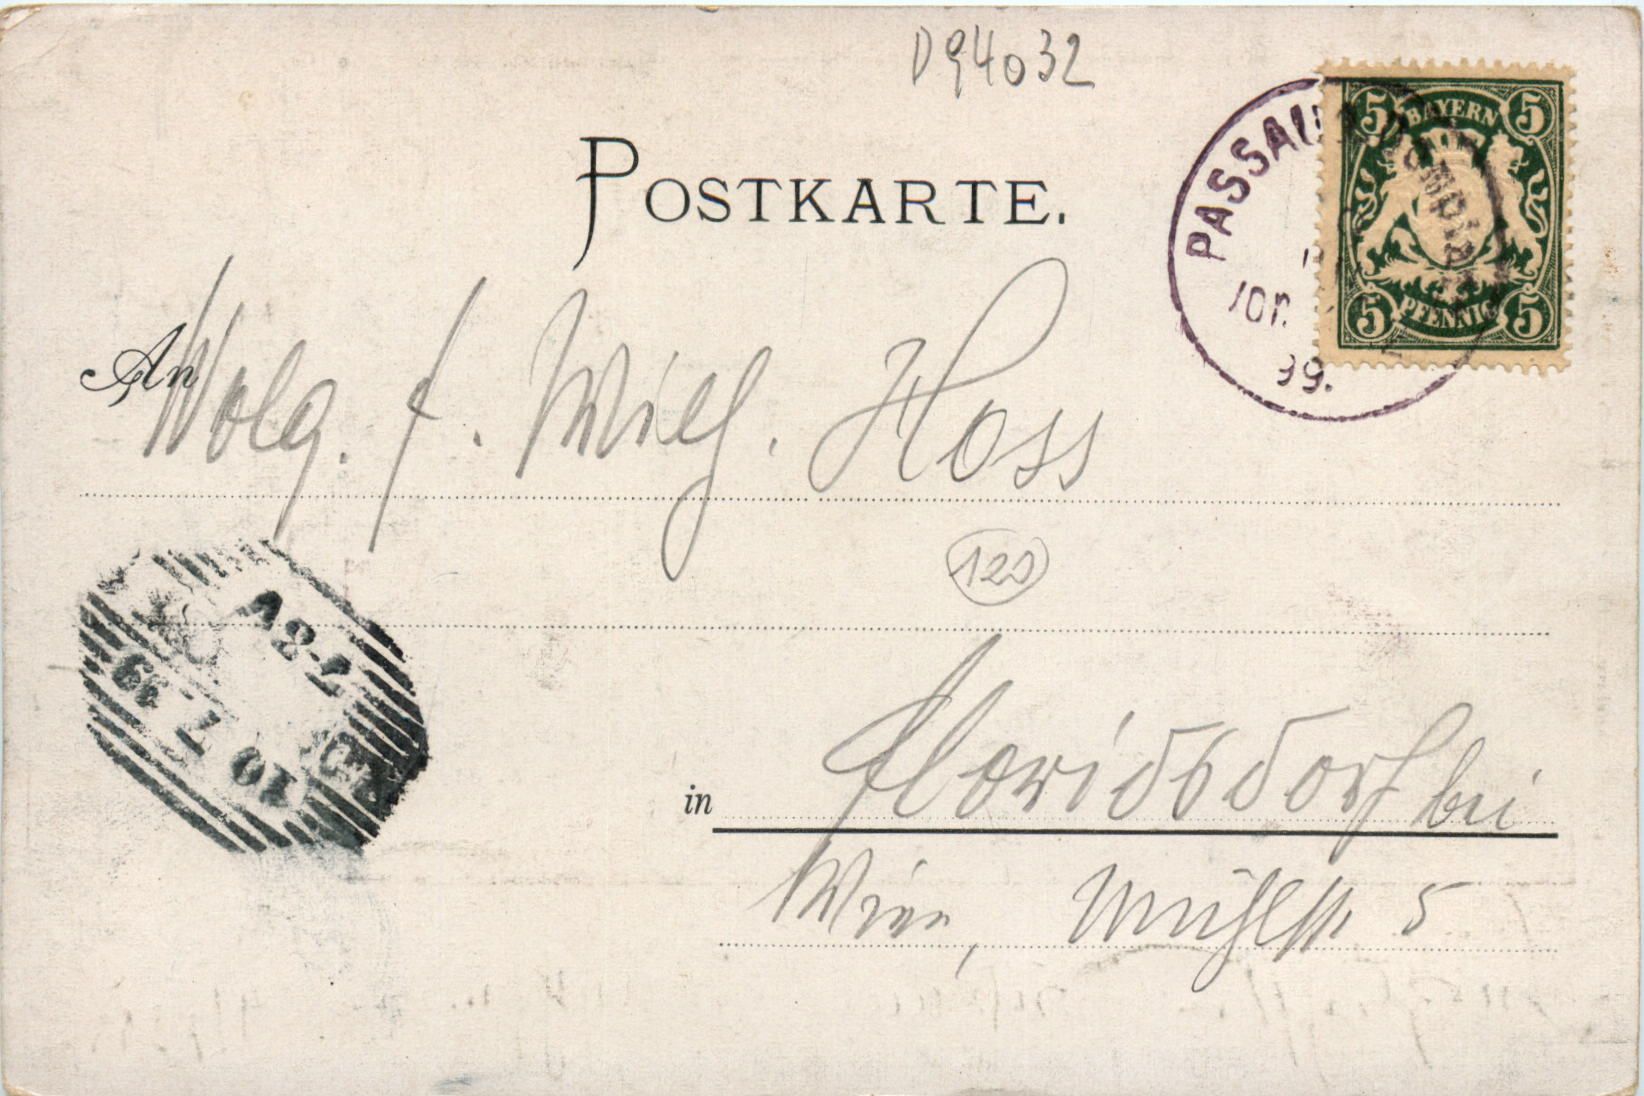 D94032
POSTKARTE.
PASSAU
5 BAYERN 5
10
99.
5 PFENNIG 5
An
Wolg. f. Wilh. Hoss
120
7-8V
10 7 99
in Floridsdorf bei
Wien, Mühlstr 5